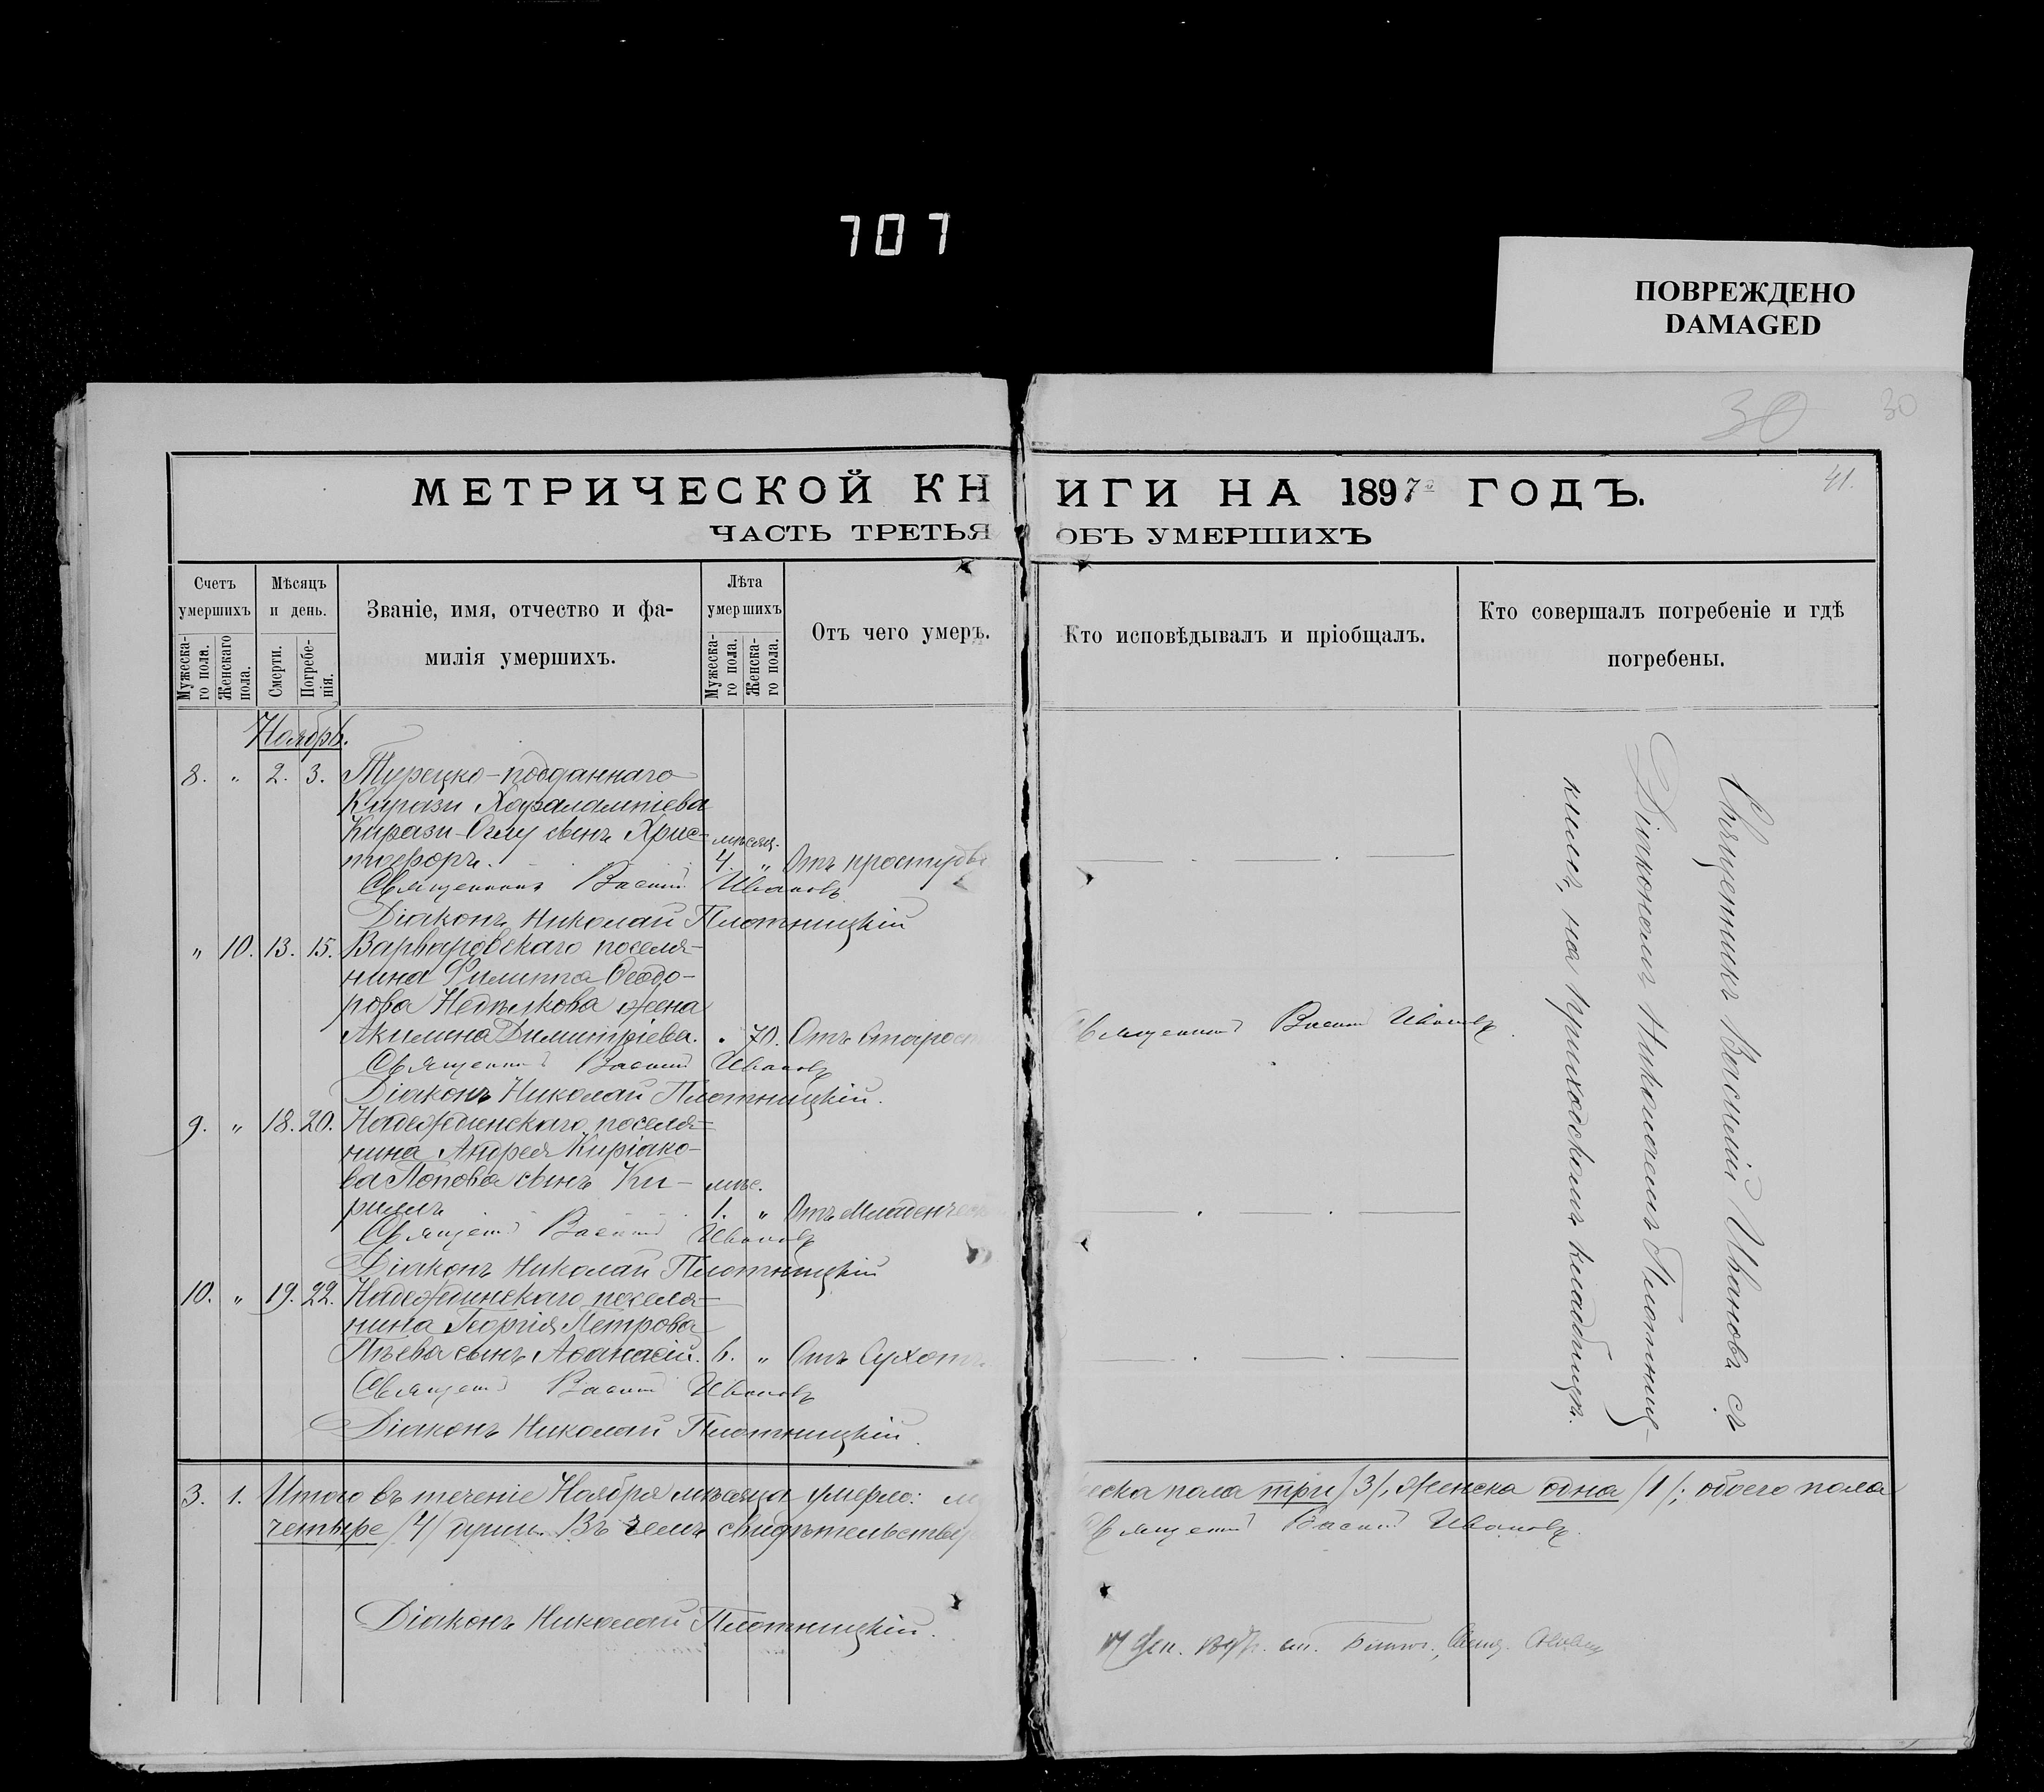 707
ПОВРЕЖДЕНО
DAMAGED
30 30
41.
МЕТРИЧЕСКОЙ КНИГИ НА 1897й ГОДЪ.
ЧАСТЬ ТРЕТЬЯ ОБЪ УМЕРШИХЪ
Счетъ умершихъ
Мужеска-го пола.
Женскаго пола.
Мѣсяцъ и день.
Смерти.
Погребе-нія.
Званіе, имя, отчество и фа-
милія умершихъ.
Лѣта умершихъ
Мужеска-го пола.
Женска-го пола.
Отъ чего умеръ.
Кто исповѣдывалъ и пріобщалъ.
Кто совершалъ погребеніе и гдѣ
погребены.
Ноябрь.
8. " 2. 3. Турецко-подданнаго
Кирази Харалампіева
Кирази-Оглу сынъ Хрис- мѣсяц.
тофоръ. 4. " Отъ простуды
Священникъ Василій Ивановъ
Діаконъ Николай Плотницкій
" 10. 13. 15. Варваровскаго поселя-
нина Филиппа Ѳеодо-
рова Недѣлкова жена
Акилина Димитріева. " 70. Отъ старост Священникъ Василій Ивановъ
Священникъ Василій Ивановъ
Діаконъ Николай Плотницкій.
9. " 18. 20. Надеждинскаго поселя-
нина Андрея Киріако-
ва Попова сынъ Ки- мѣс.
риллъ 1. " Отъ младенчес
Священникъ Василій Ивановъ
Діаконъ Николай Плотницкій
10. " 19. 22. Надеждинскаго поселя-
нина Георгія Петрова
Пѣева сынъ Аѳанасій. 6. " Отъ сухот
Священникъ Василій Ивановъ
Діаконъ Николай Плотницкій.
Священникъ Василій Ивановъ съ
Діакономъ Николаемъ Плотниц-
кимъ, на приходскомъ кладбищѣ.
3. 1. Итого въ теченіе Ноября мѣсяца умерло: м еска пола три /3/, женска одна /1/; обоего пола
четыре /4/ души. Въ чемъ свидѣтельству Священникъ Василій Ивановъ.
Діаконъ Николай Плотницкій.